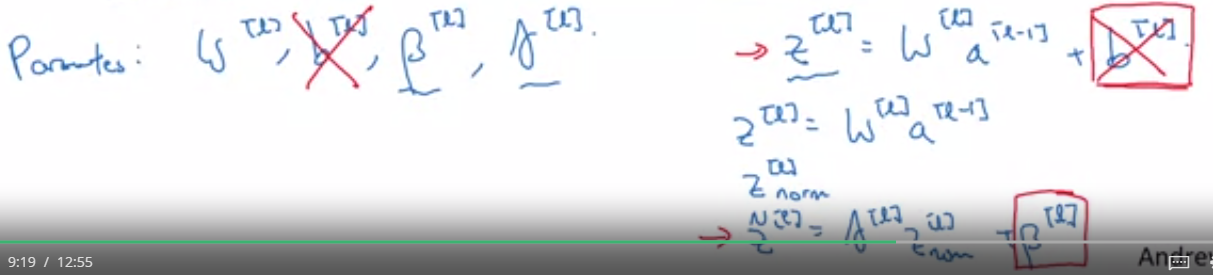 Parameters: W^[l], b^[l], β^[l], γ^[l].
→ z^[l] = W^[l] a^[l-1] + b^[l].
z^[l] = W^[l] a^[l-1]
z^[l]_norm
→ z̃^[l] = γ^[l] z^[l]_norm + β^[l]
9:19 / 12:55
Andrew